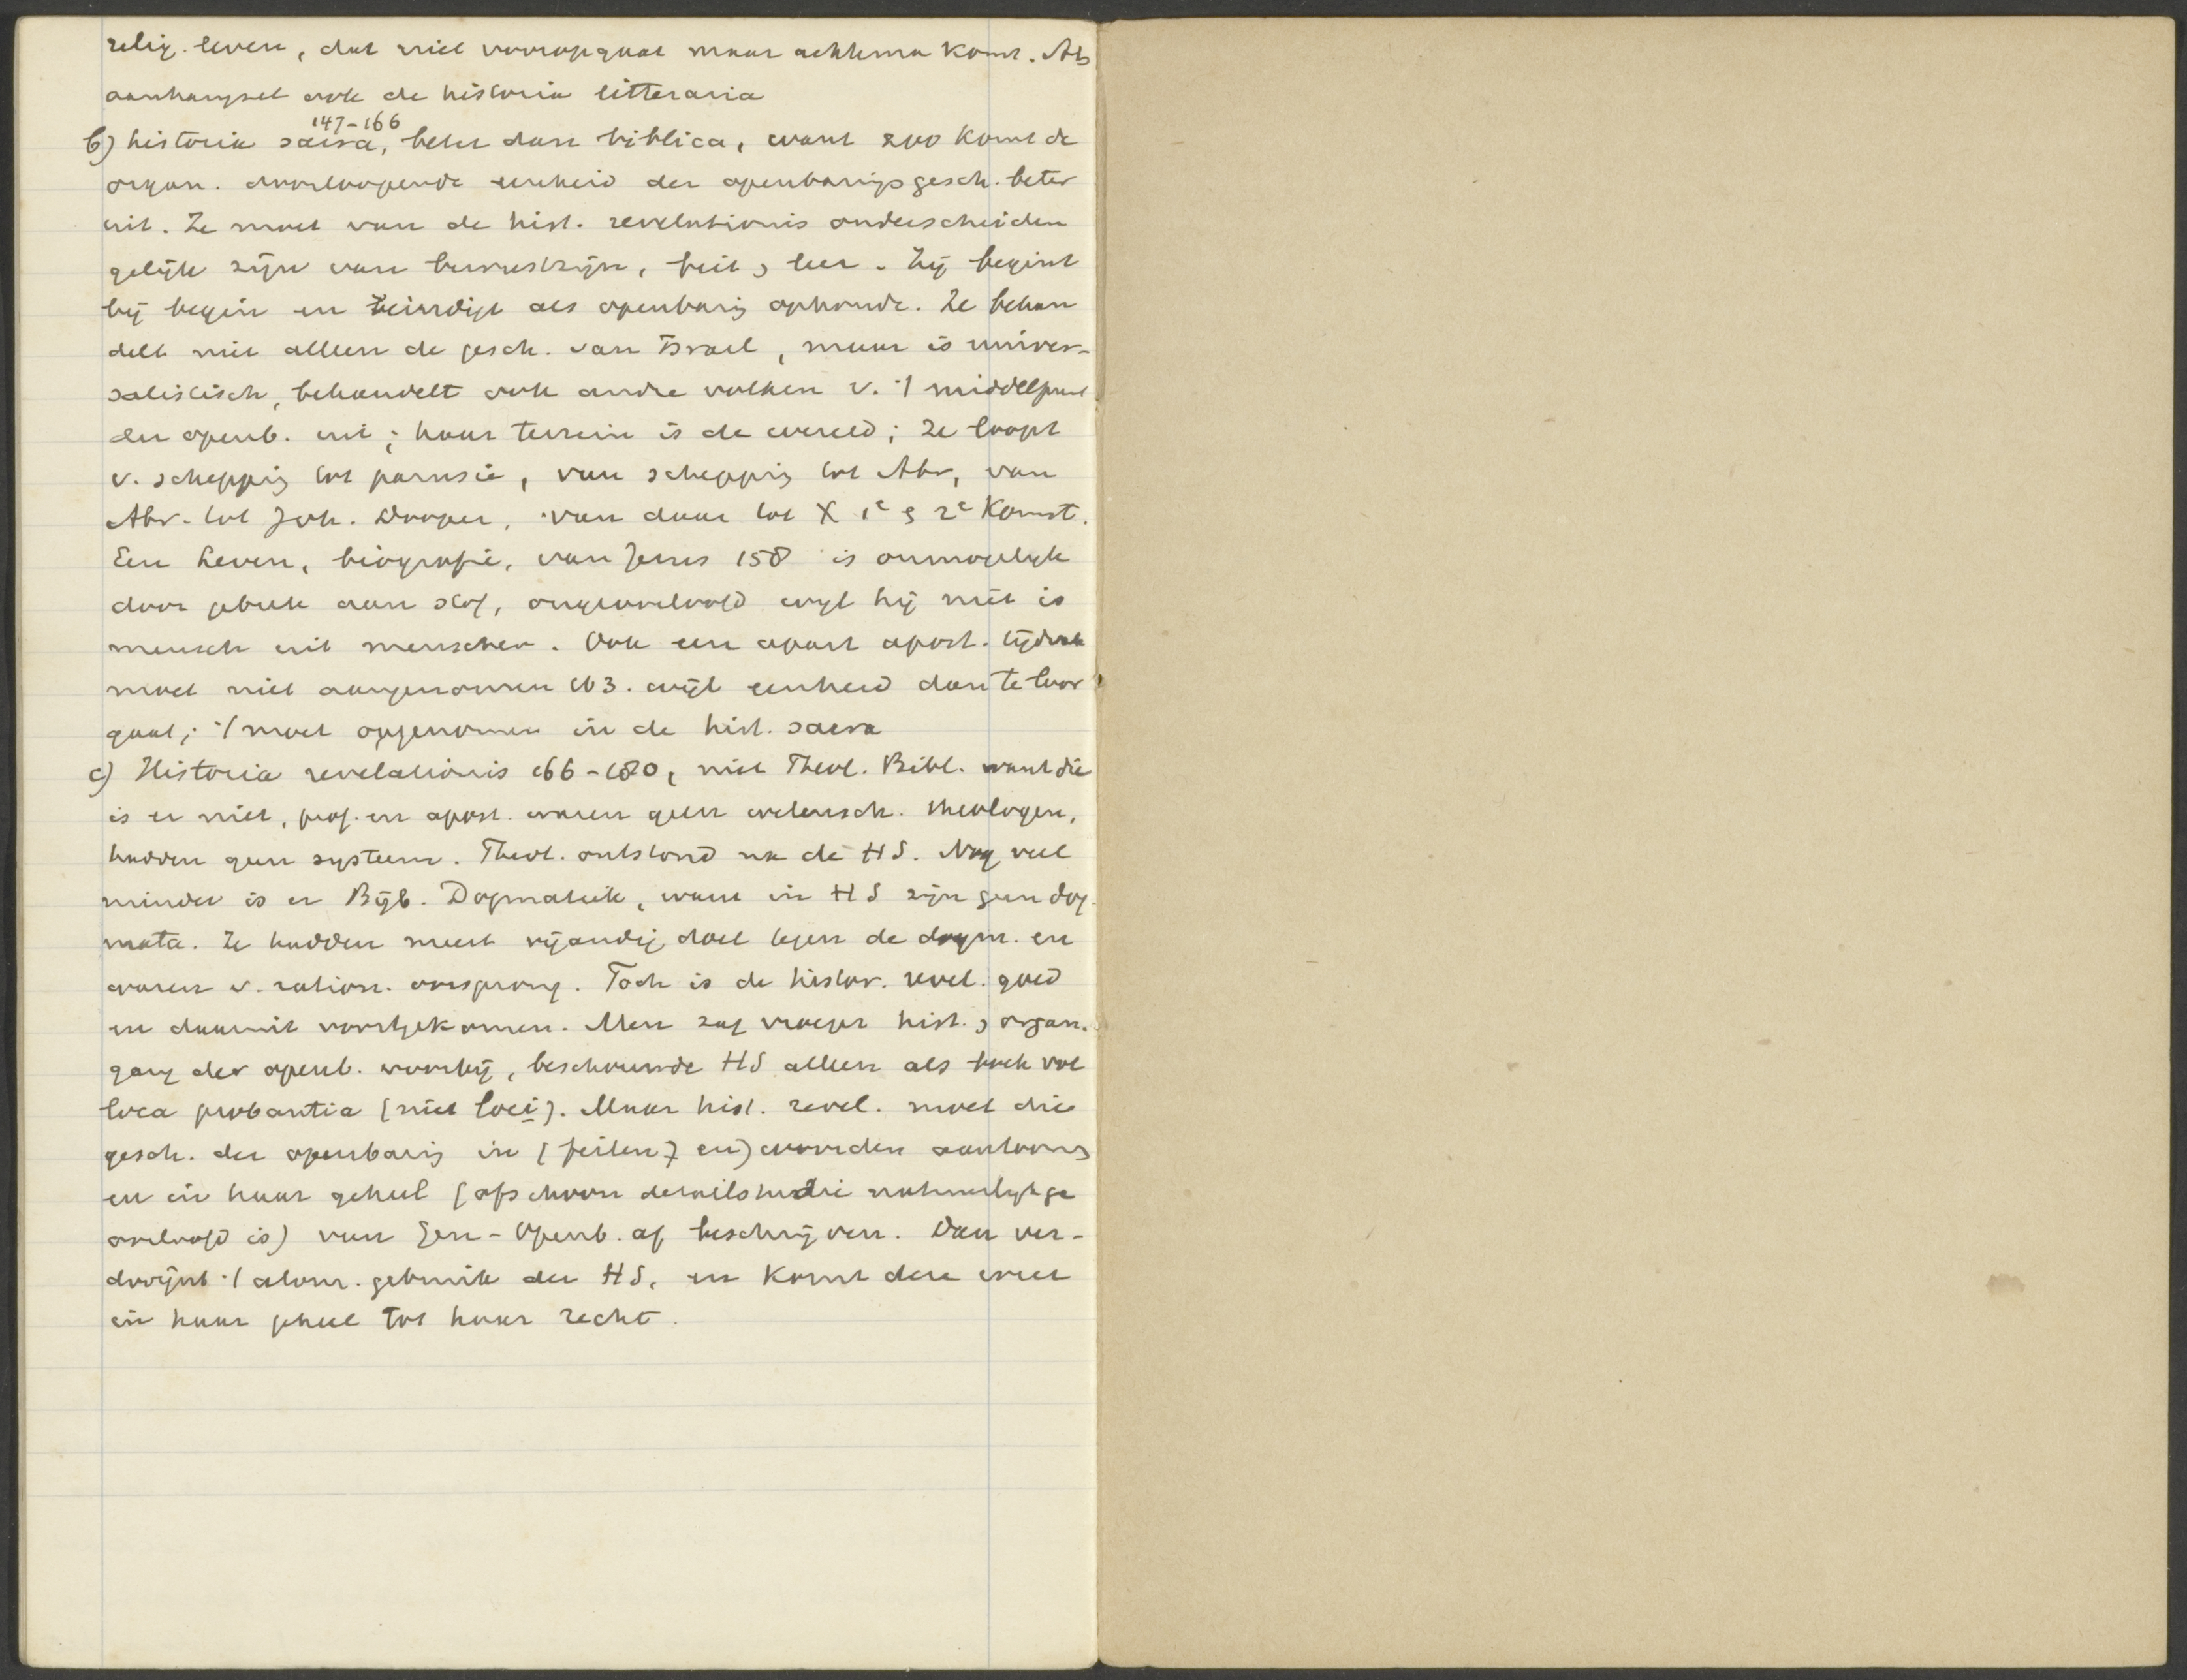 relig. leven, dat niet vooropgaat maar achterna komt. Als
aanhangsel ook de historia litteraria
147-166
b) historia sacra, beter dan biblica, want zoo komt de
organ. doorloopende eenheid der openbarings gesch. beter
uit. Ze moet van de hist. revelationis onderscheiden
gelijk zijn van bewustzijn, feit, leer. Zij begint
bij begin en beindigt als openbaring ophoude. Ze behan
delt niet alleen de gesch. van Israel, maar is univer-
salistisch, behandelt ook andre volken v. 't middelpunt
der openb. uit; haar terrein is de wereld; ze loopt
v. schepping tot parusie, van schepping tot Abr, van
Abr. tot Joh. Dooper, van daar tot X 1e & 2e Komst.
Een Leven, biografie, van Jezus 158 is onmogelijk
door gebrek aan stof, ongeoorloofd wijl hij niet is
mensch uit menschen. Ook een apart apost. tijdvak
moet niet aangenomen wijl eenheid dan te loor
gaat; 't moet opgenomen in de hist. sacra
c) Historia revelationis 166-180, niet Theol. Bibl. want die
is er niet, prof. en apost. waren geen wetensch. theologen,
hadden geen systeem. Theol. ontstond na de HS. Nog veel
minder is er Bijb. Dogmatiek, want in HS zijn geen dog-
mata. Ze hadden meest vijandig doel tegen de dogm. en
waren v. ration. oorsprong. Toch is de histor. revel. goed
en daaruit voortgekomen. Men zag vroeger hist., organ.
gang der openb. voorbij, beschouwde HS alleen als boek vol
loca probantia (niet loci). Maar hist. revel. moet die
gesch. der openbaring in (feiten? en) woorden aantoonen
en in haar geheel (ofschoon detailstudie natuurlijk ge
oorloofd is) van Gen - Openb. af beschrijven. Dan ver-
dwijnt 't atom. gebruik der HS, en komt deze weer
in haar geheel tot haar recht.